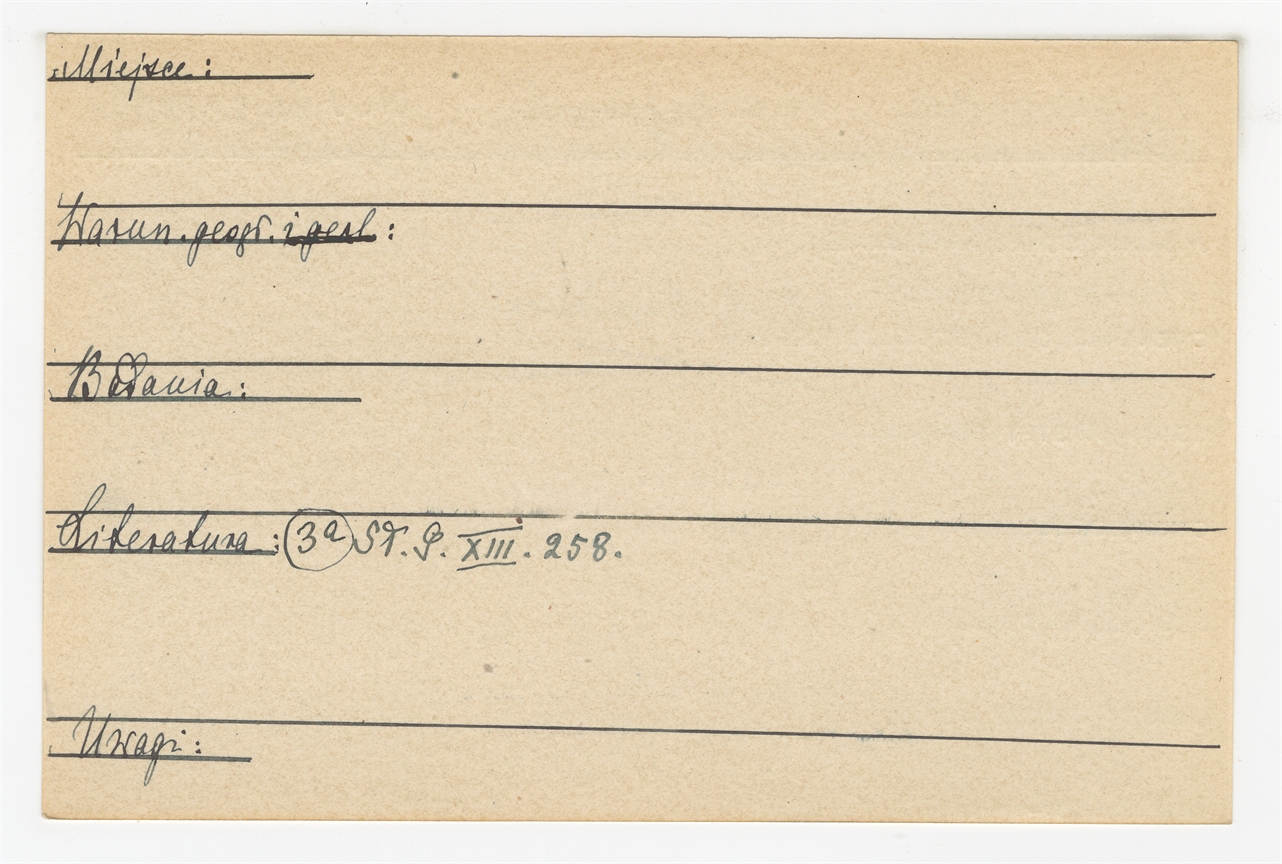 Miejsce:
Warun. geogr. i geol:
Badania:
Literatura: 3a St. P. XIII. 258.
Uwagi: